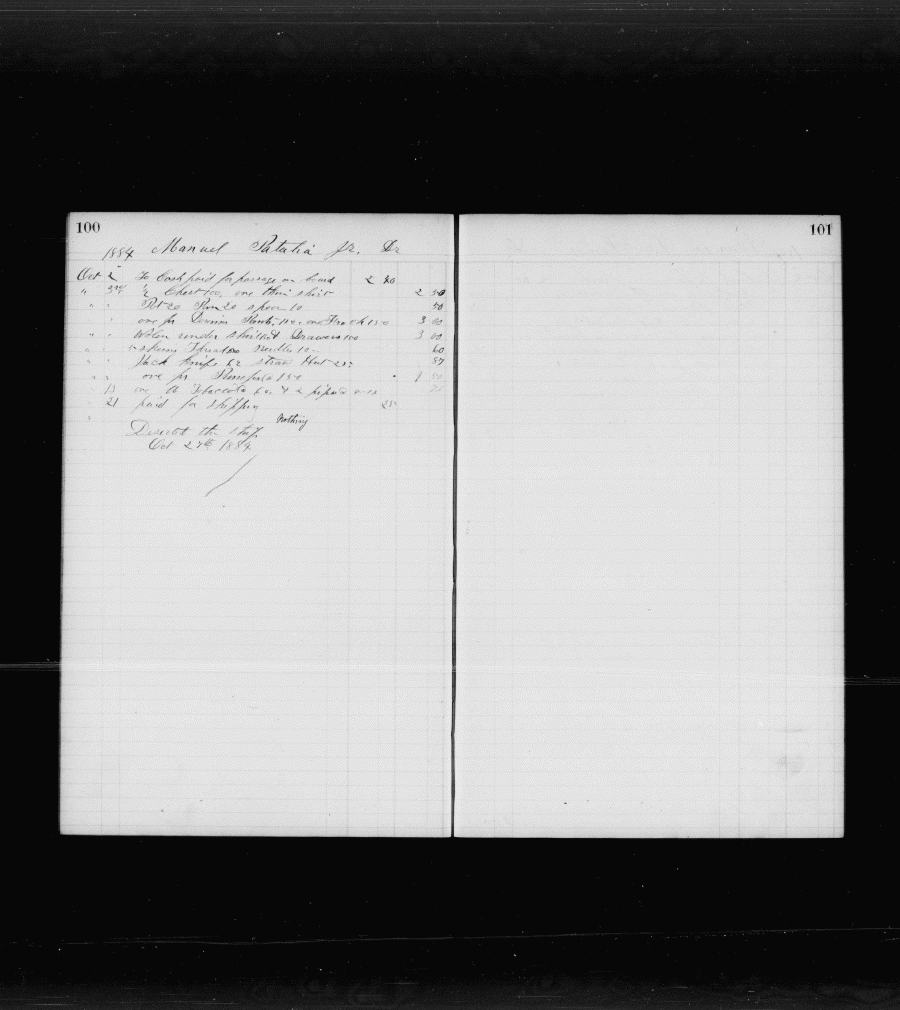 100
101
1884 Manuel Jr. Dr
Oct 2 To Cash paid for passage on board 2 40
" 3rd " Chest 100, one thin shirt 2 50
" " Pot 20 Pan 20 spoon 10 50
" " one pr Denim Pants, one Frock 150 3 00
" " Wolen under shirt Drawers 3 00
" " Thread Needles 10 60
" " Jack Knife straw Hat 25 87
" " one pr 150 1 50
" 13 Tobacco
" 21 paid for shipping 25
" Nothing
Deserted the ship
Oct 27th 1884